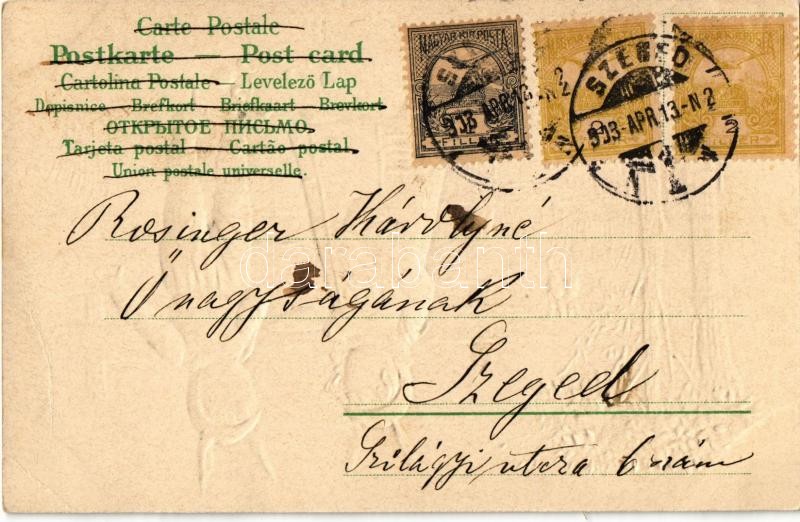 Carte Postale
Postkarte — Post card
Cartolina Postale — Levelező Lap
Dopisnice — Brefkort — Briefkaart — Brevkort
ОТКРЫТОЕ ПИСЬМО.
Tarjeta postal — Cartão postal.
Union postale universelle.
MAGYAR KIR. POSTA
FILLÉR
SZEGED
903 APR. 13.-N 2
Rosinger Károlyné
Ő nagyságának
Szeged
Szilágyi utcza 6 szám
darabanth